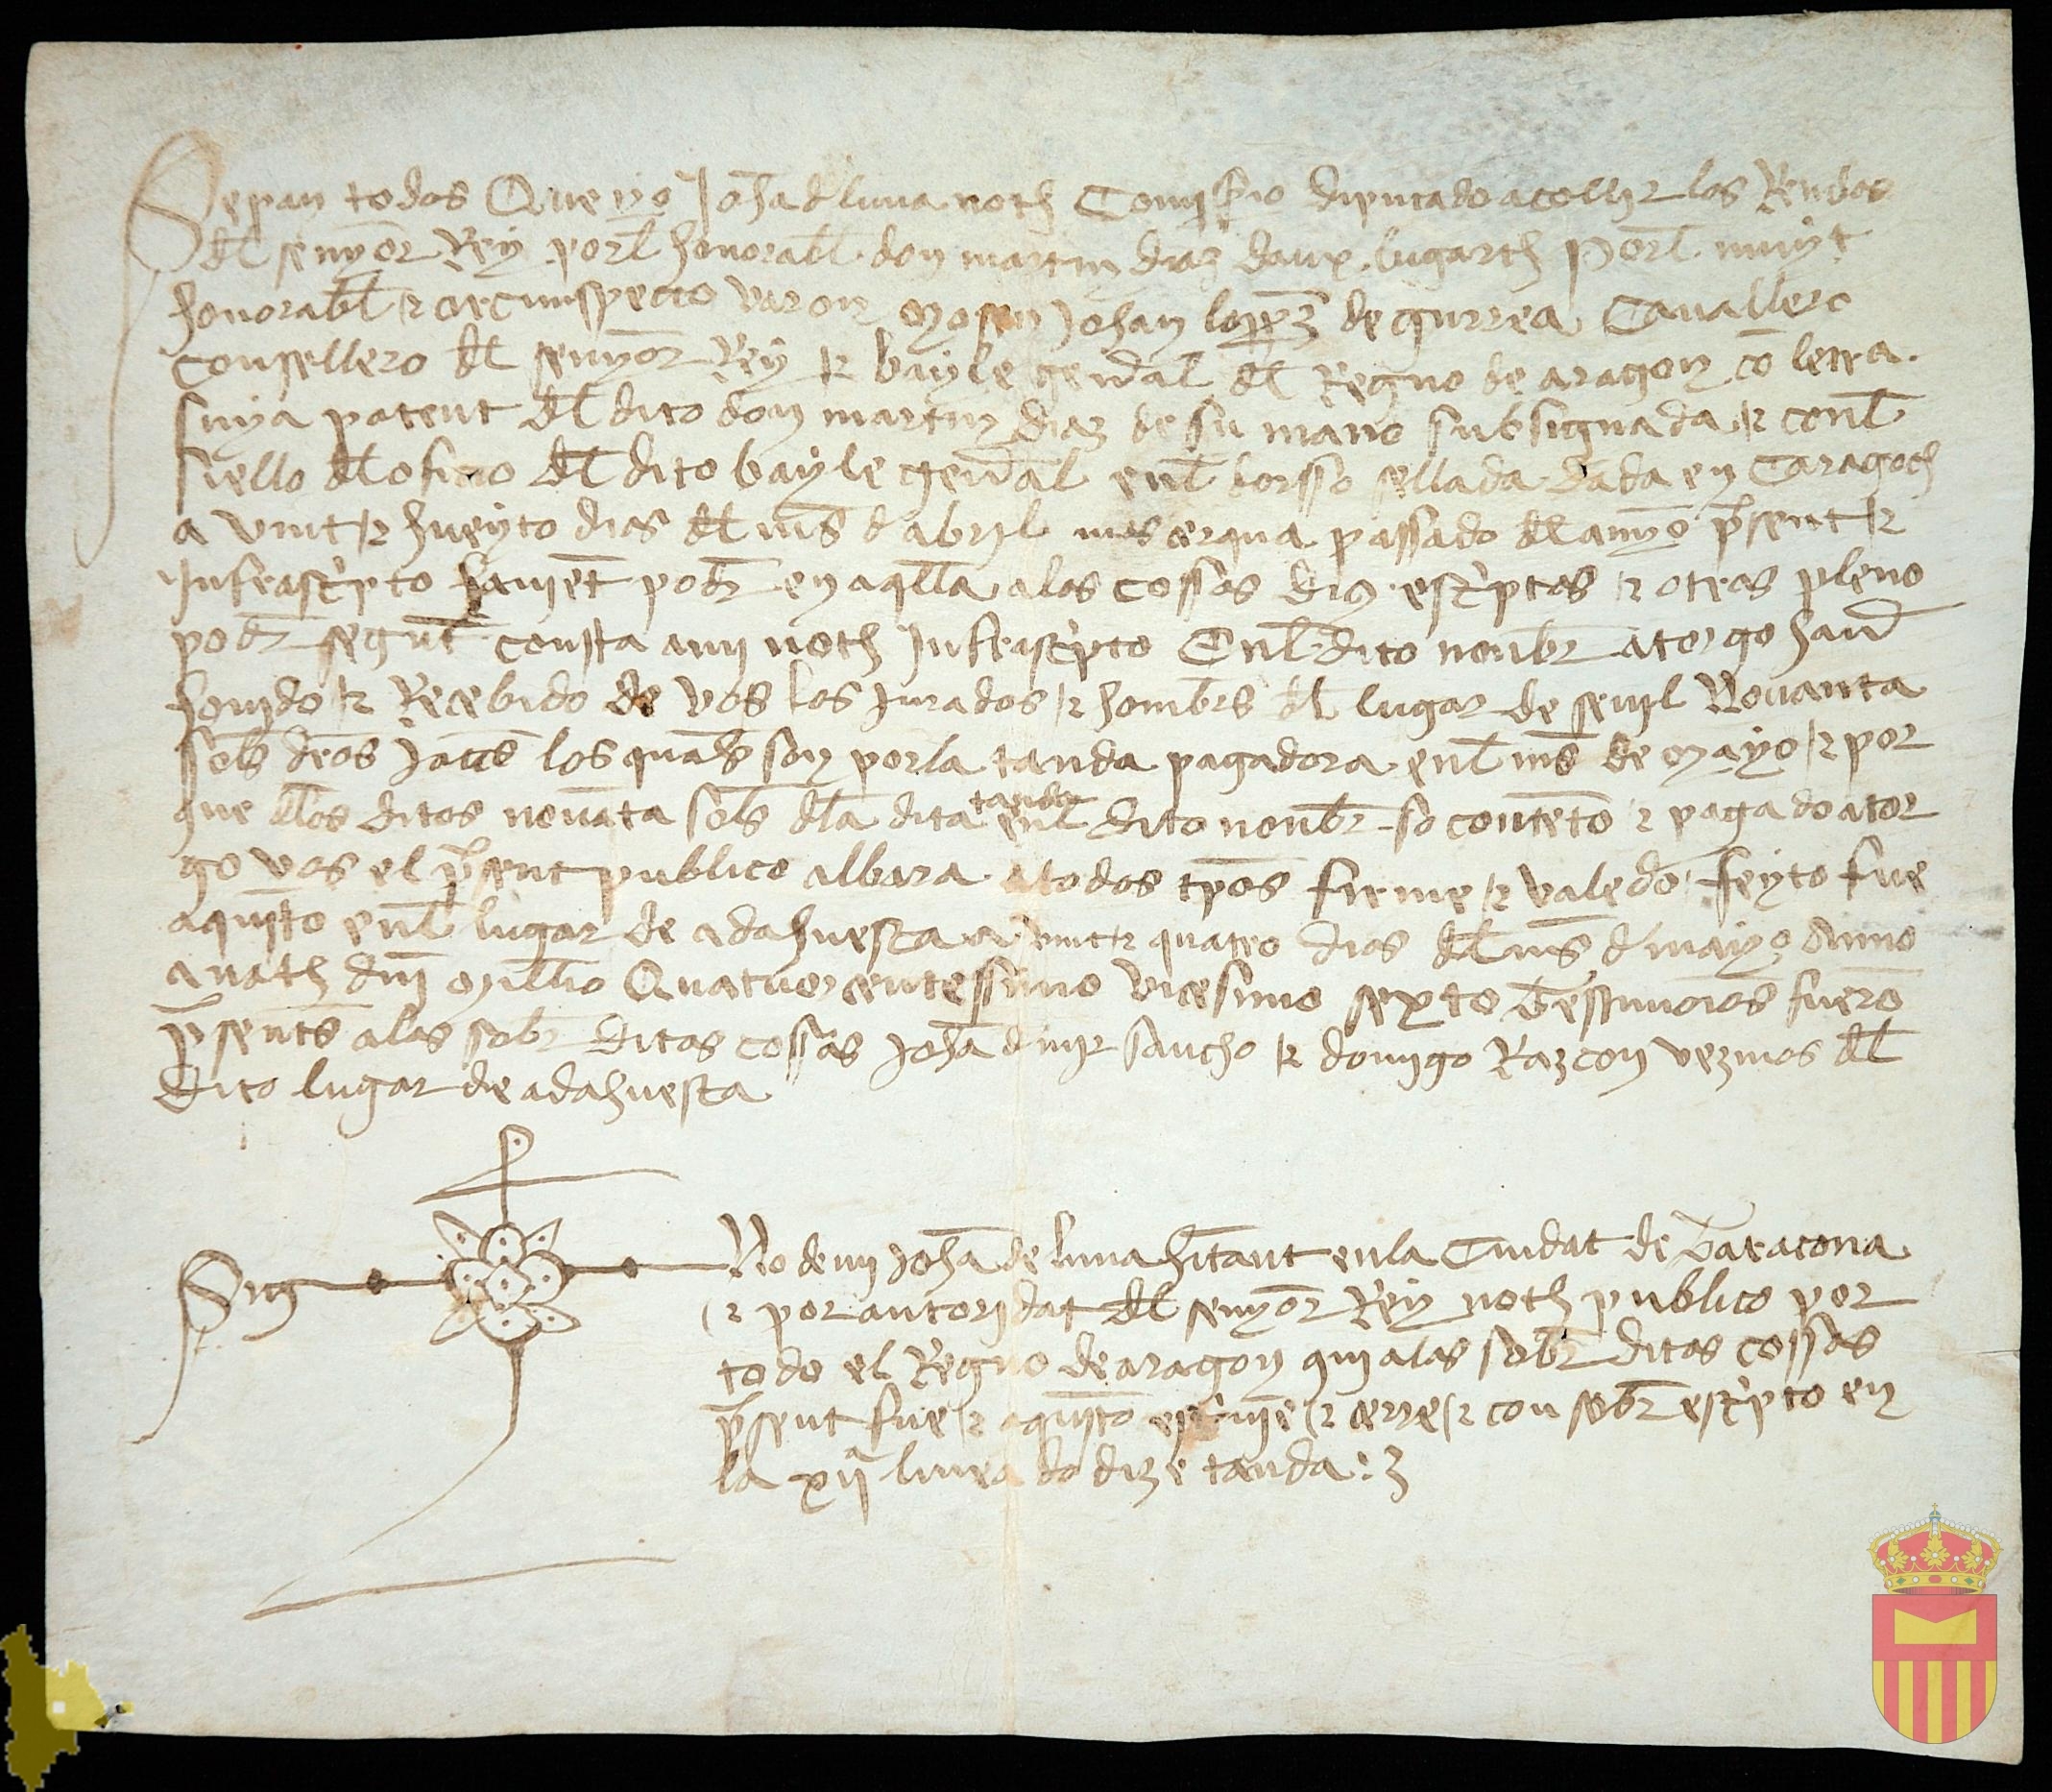 Sepan todos Que yo Johā d luna noth Comissario diputado a collir los Rendos
dl senyor Rey porl honorabl don martin diaz daux lugarth Porl muyt
honorabl ⁊ circunspecto varon Mosen Johan lopez de gurrea Cavallero
consellero dl senyor Rey ⁊ bayle genral dl Regno de aragon cō letra
suya patent dl dito don martin diaz de su mano subsignada ⁊ conl
siello dl oficio dl dito bayle genral enl dorsso sellada dada en Caragoça
a vint ⁊ hueyto dias dl mes d abril mes cerqua passado dl anyo psent ⁊
Infrascripto havient poder en aqlla a las cossas dius escriptas ⁊ otras pleno
poder segunt consta a mi noth Infrascripto Enl dito nonbr atorgo haver
hovido ⁊ Recebido de vos los Jurados ⁊ hombrs dl lugar de sevil Novanta
sols dros Jaccs los quals son por la tanda pagadora enl mes de Mayo ⁊ por
que dlos ditos novāta sols dla dita tanda enl dito nonbr so contēto ⁊ pagado ator
go vos el psent publico albara a todos tpos firme ⁊ valedo feyto fue
aquesto enl lugar de adahuesca a vint ⁊ quatro dias dl mes d mayo Anno
a nath dni Millio Quatuorcentessimo vicesimo sexto Testimonios fuerō
psents a las sobr ditas cossas Johā d mir sancho ⁊ domigo Razcon vezinos dl
dito lugar de adahuesca
Sig No de mi Johā de luna hitant en la Ciudat de Taracona
⁊ por autoridat dl senyor Rey noth publico por
todo el Regno de aragon qui a las sobr ditas cossas
psent fue ⁊ aquesto escrivie ⁊ cerre ⁊ con sobr escripto en
la xij linea do dize tanda